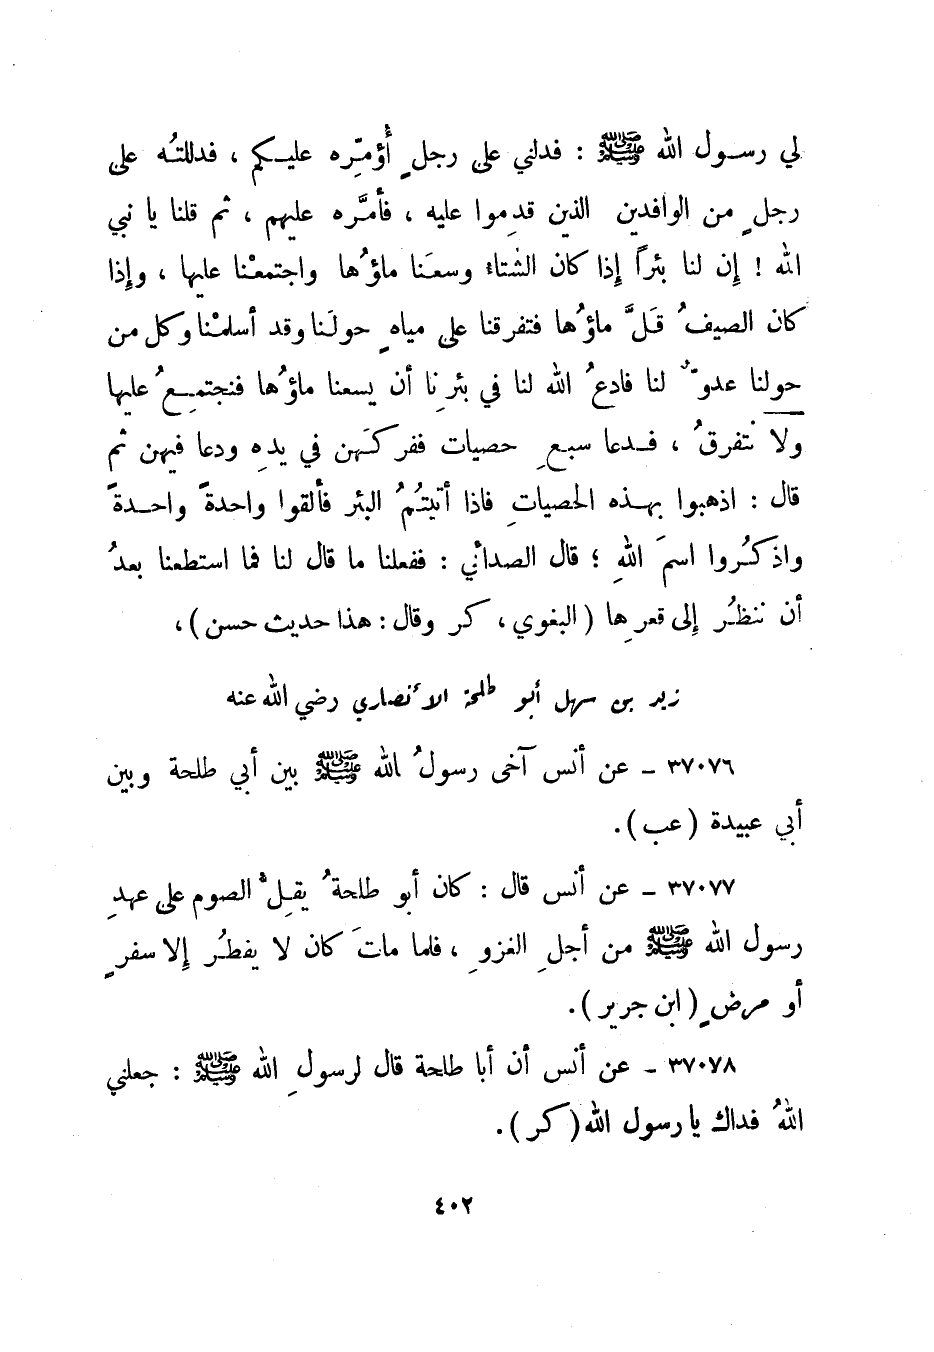 لي رسول الله ﷺ : فدلني على رجلٍ أُؤمِّره عليكم ، فدللتُه على
رجلٍ من الوافدين الذين قدِموا عليه ، فأمَّره عليهم ، ثم قلنا يا نبي
الله ! إن لنا بئراً إذا كان الشتاء وسعَنا ماؤُها واجتمعْنا عليها ، وإذا
كان الصيفُ قَلَّ ماؤُها فتفرقنا على مياهٍ حولَنا وقد أسلمْنا وكل من
حولنا عدوٌّ لنا فادعُ الله لنا في بئرِنا أن يسعنا ماؤُها فنجتمعُ عليها
ولا نتفرقُ ، فدعا سبعِ حصيات ففركَهن في يدِه ودعا فيهن ثم
قال : اذهبوا بهذه الحصياتِ فاذا أتيتُمُ البئر فألقوا واحدةً واحدةً
واذكُروا اسمَ اللهِ ؛ قال الصدائي : ففعلنا ما قال لنا فما استطعنا بعدُ
أن ننظُر إلى قعرِها ( البغوي ، كر وقال : هذا حديث حسن ) ،
زيد بن سهل أبو طلحة الأنصاري رضي الله عنه
٣٧٠٧٦ ـ عن أنس آخى رسولُ الله ﷺ بين أبي طلحة وبين
أبي عبيدة ( عب ) .
٣٧٠٧٧ ـ عن أنس قال : كان أبو طلحةُ يقِلُّ الصوم على عهدِ
رسول الله ﷺ من أجلِ الغزوِ ، فلما ماتَ كان لا يفطُر إلا سفرٍ
أو مرضٍ ( ابن جرير ) .
٣٧٠٧٨ ـ عن أنس أن أبا طلحة قال لرسولِ الله ﷺ : جعلني
اللهُ فداك يا رسول الله ( كر ) .
٤٠٢